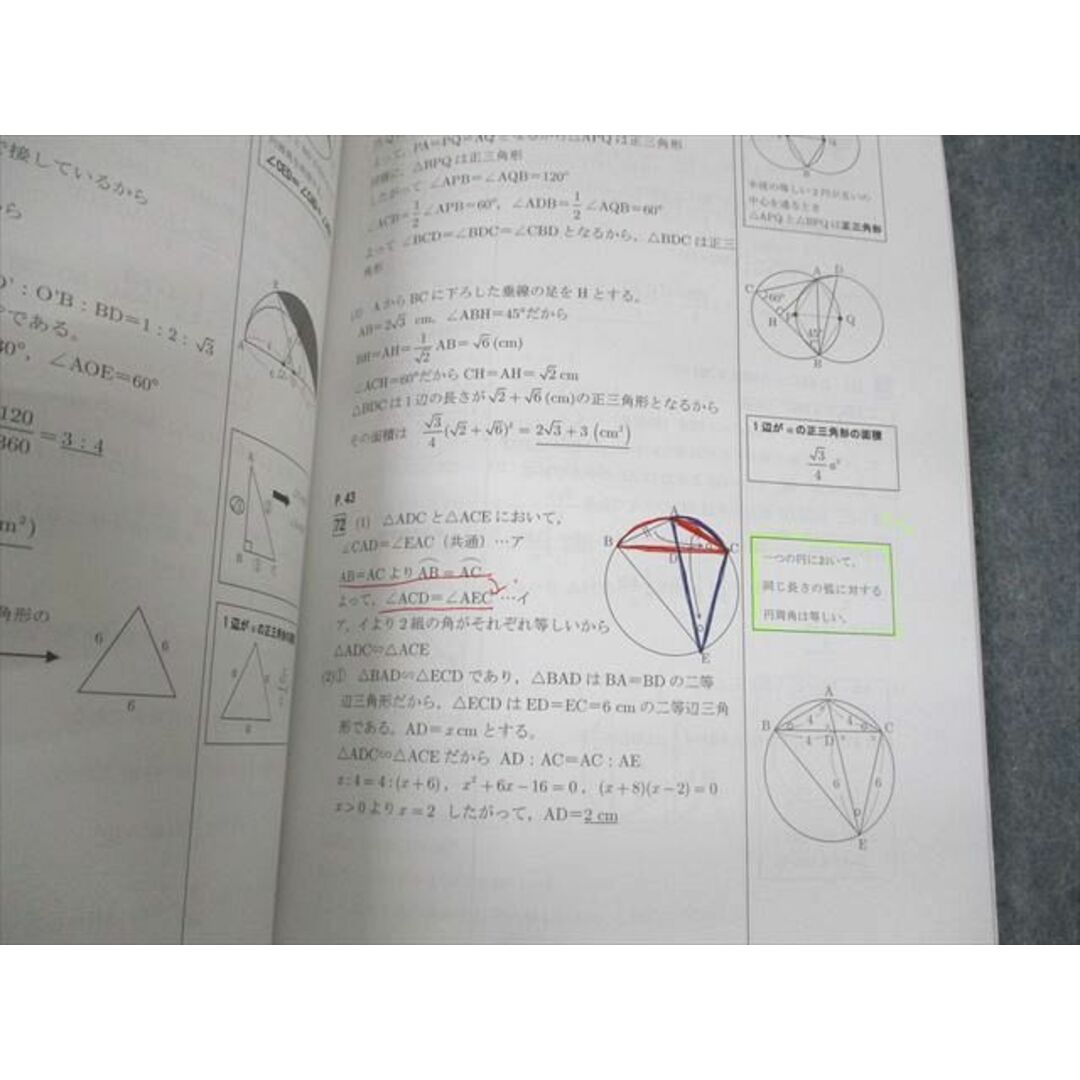 で接しているから
から
O'：O'B：BD=1：2：√3
である。
30°，∠AOE=60°
120
360
=3：4
角形の
6
6
6
1辺が
の正三角形の面積
PA=PQ=AQ
△APQは正三角形
同様に，△BPQは正三角形
したがって ∠APB=∠AQB=120°
∠ACB=1/2∠APB=60°，∠ADB=1/2∠AQB=60°
よって ∠BCD=∠BDC=∠CBDとなるから，△BDCは正三
角形
AからBCに下ろした垂線の足をHとする。
AB=2√3 cm，∠ABH=45°だから
BH=AH=1/√2 AB=√6(cm)
∠ACH=60°だからCH=AH=√2cm
△BDCは1辺の長さが√2+√6(cm)の正三角形となるから
その面積は √3/4(√2+√6)²=2√3+3(cm²)
P.43
72 (1) △ADCと△ACEにおいて，
∠CAD=∠EAC（共通）…ア
AB=ACよりAB=AC
よって，∠ACD=∠AEC …イ
ア，イより2組の角がそれぞれ等しいから
△ADC∽△ACE
(2)① △BAD∽△ECDであり，△BADはBA=BDの二等
辺三角形だから，△ECDはED=EC=6cmの二等辺三角
形である。AD=xcmとする。
△ADC∽△ACEだから AD：AC=AC：AE
x：4=4：(x+6)，x²+6x-16=0，(x+8)(x-2)=0
x>0よりx=2 したがって，AD=2 cm
A
B
C
D
E
半径の等しい2円が互いの
中心を通るとき
△APQと△BPQは正三角形
A D
C
60°
H
P
Q
45°
B
1辺がaの正三角形の面積
√3/4 a²
一つの円において，
同じ長さの弧に対する
円周角は等しい。
A
B
4
4
C
D
4
6
6
E